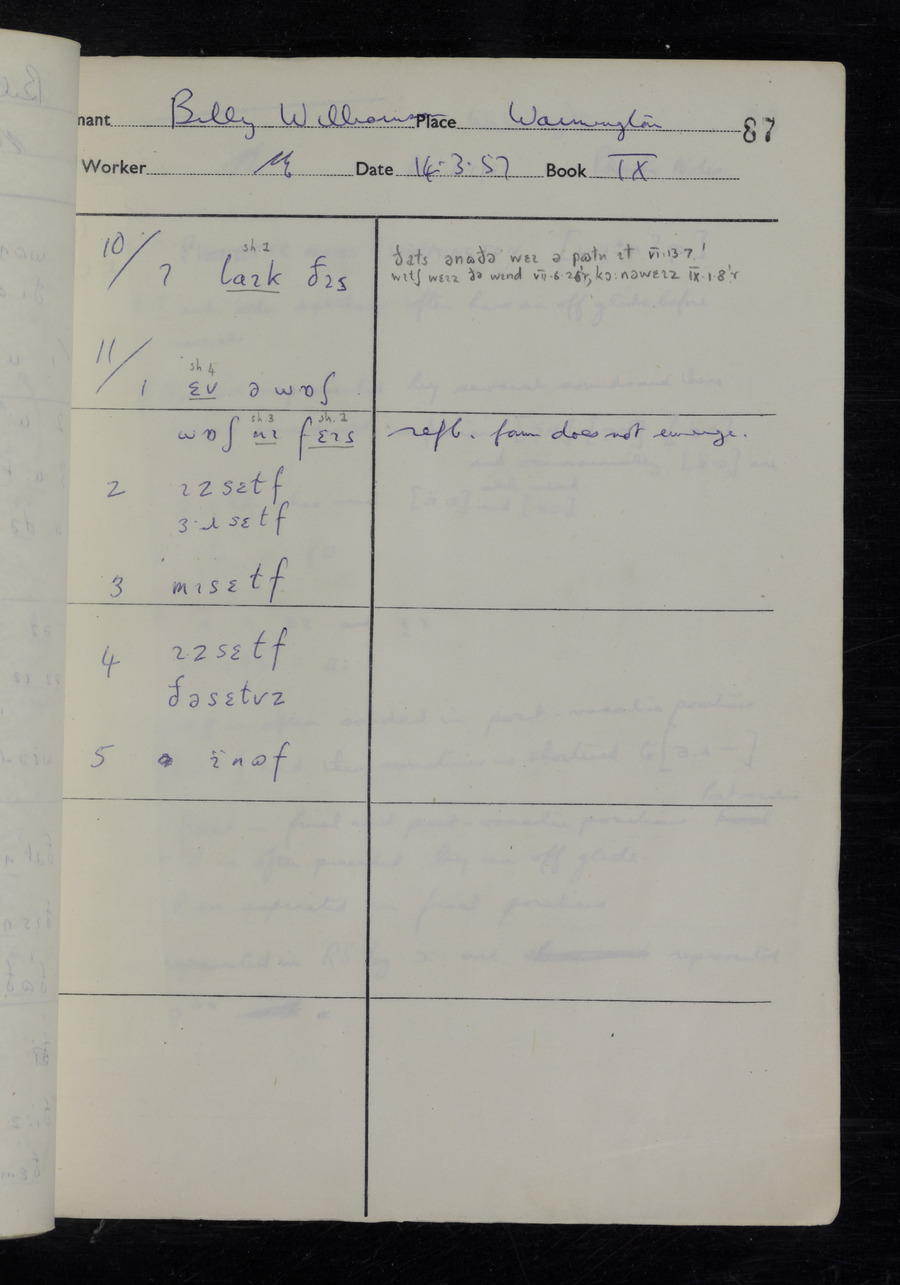 nant Billy Williamson Place Warmington 87
Worker Date 14·3·57 Book IX
10/
sh 2
7 laɪk ðɪs
ðats ənʊðə weɪ ə pʊtn ɪt VII·13·7!
wɪtʃ weɪz ðə wɪnd VII·6·26'r, kɔ:nəweɪz IX·1·8'r
11/
sh 4
1 ɛv ə wɒʃ
sh 3 sh. 2
wɒʃ mɪ fɛɪs refl. form does not emerge.
2 ɪzsɛtf
ɜ·ɹsɛtf
3 mɪsɛtf
4 ɪzsɛtf
ðəsɛtvz
5 ï nʊf